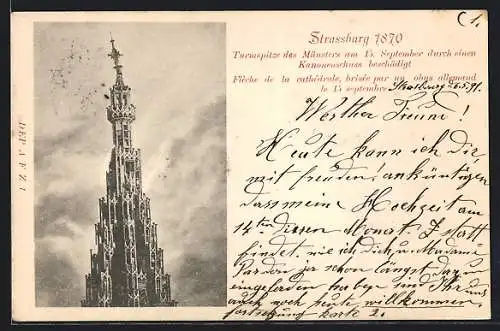 C 1.
Strassburg 1870
Turmspitze des Münsters am 15. September durch einen
Kanonenschuss beschädigt
Flèche de la cathédrale, brisée par un obus allemand
le 15 septembre
Strasburg 26.5.91.
Werther Freund!
Heute kann ich Dir,
mit freuden, ankündigen
dass meine Hochzeit am
14ten diesen Monat. statt
findet. wie ich Dich, u. Madame
schon längst dazu
eingeladen habe. sind Ihr uns
auch noch heute willkommen.
fortsetzung karte 2.
DEP A F Z I